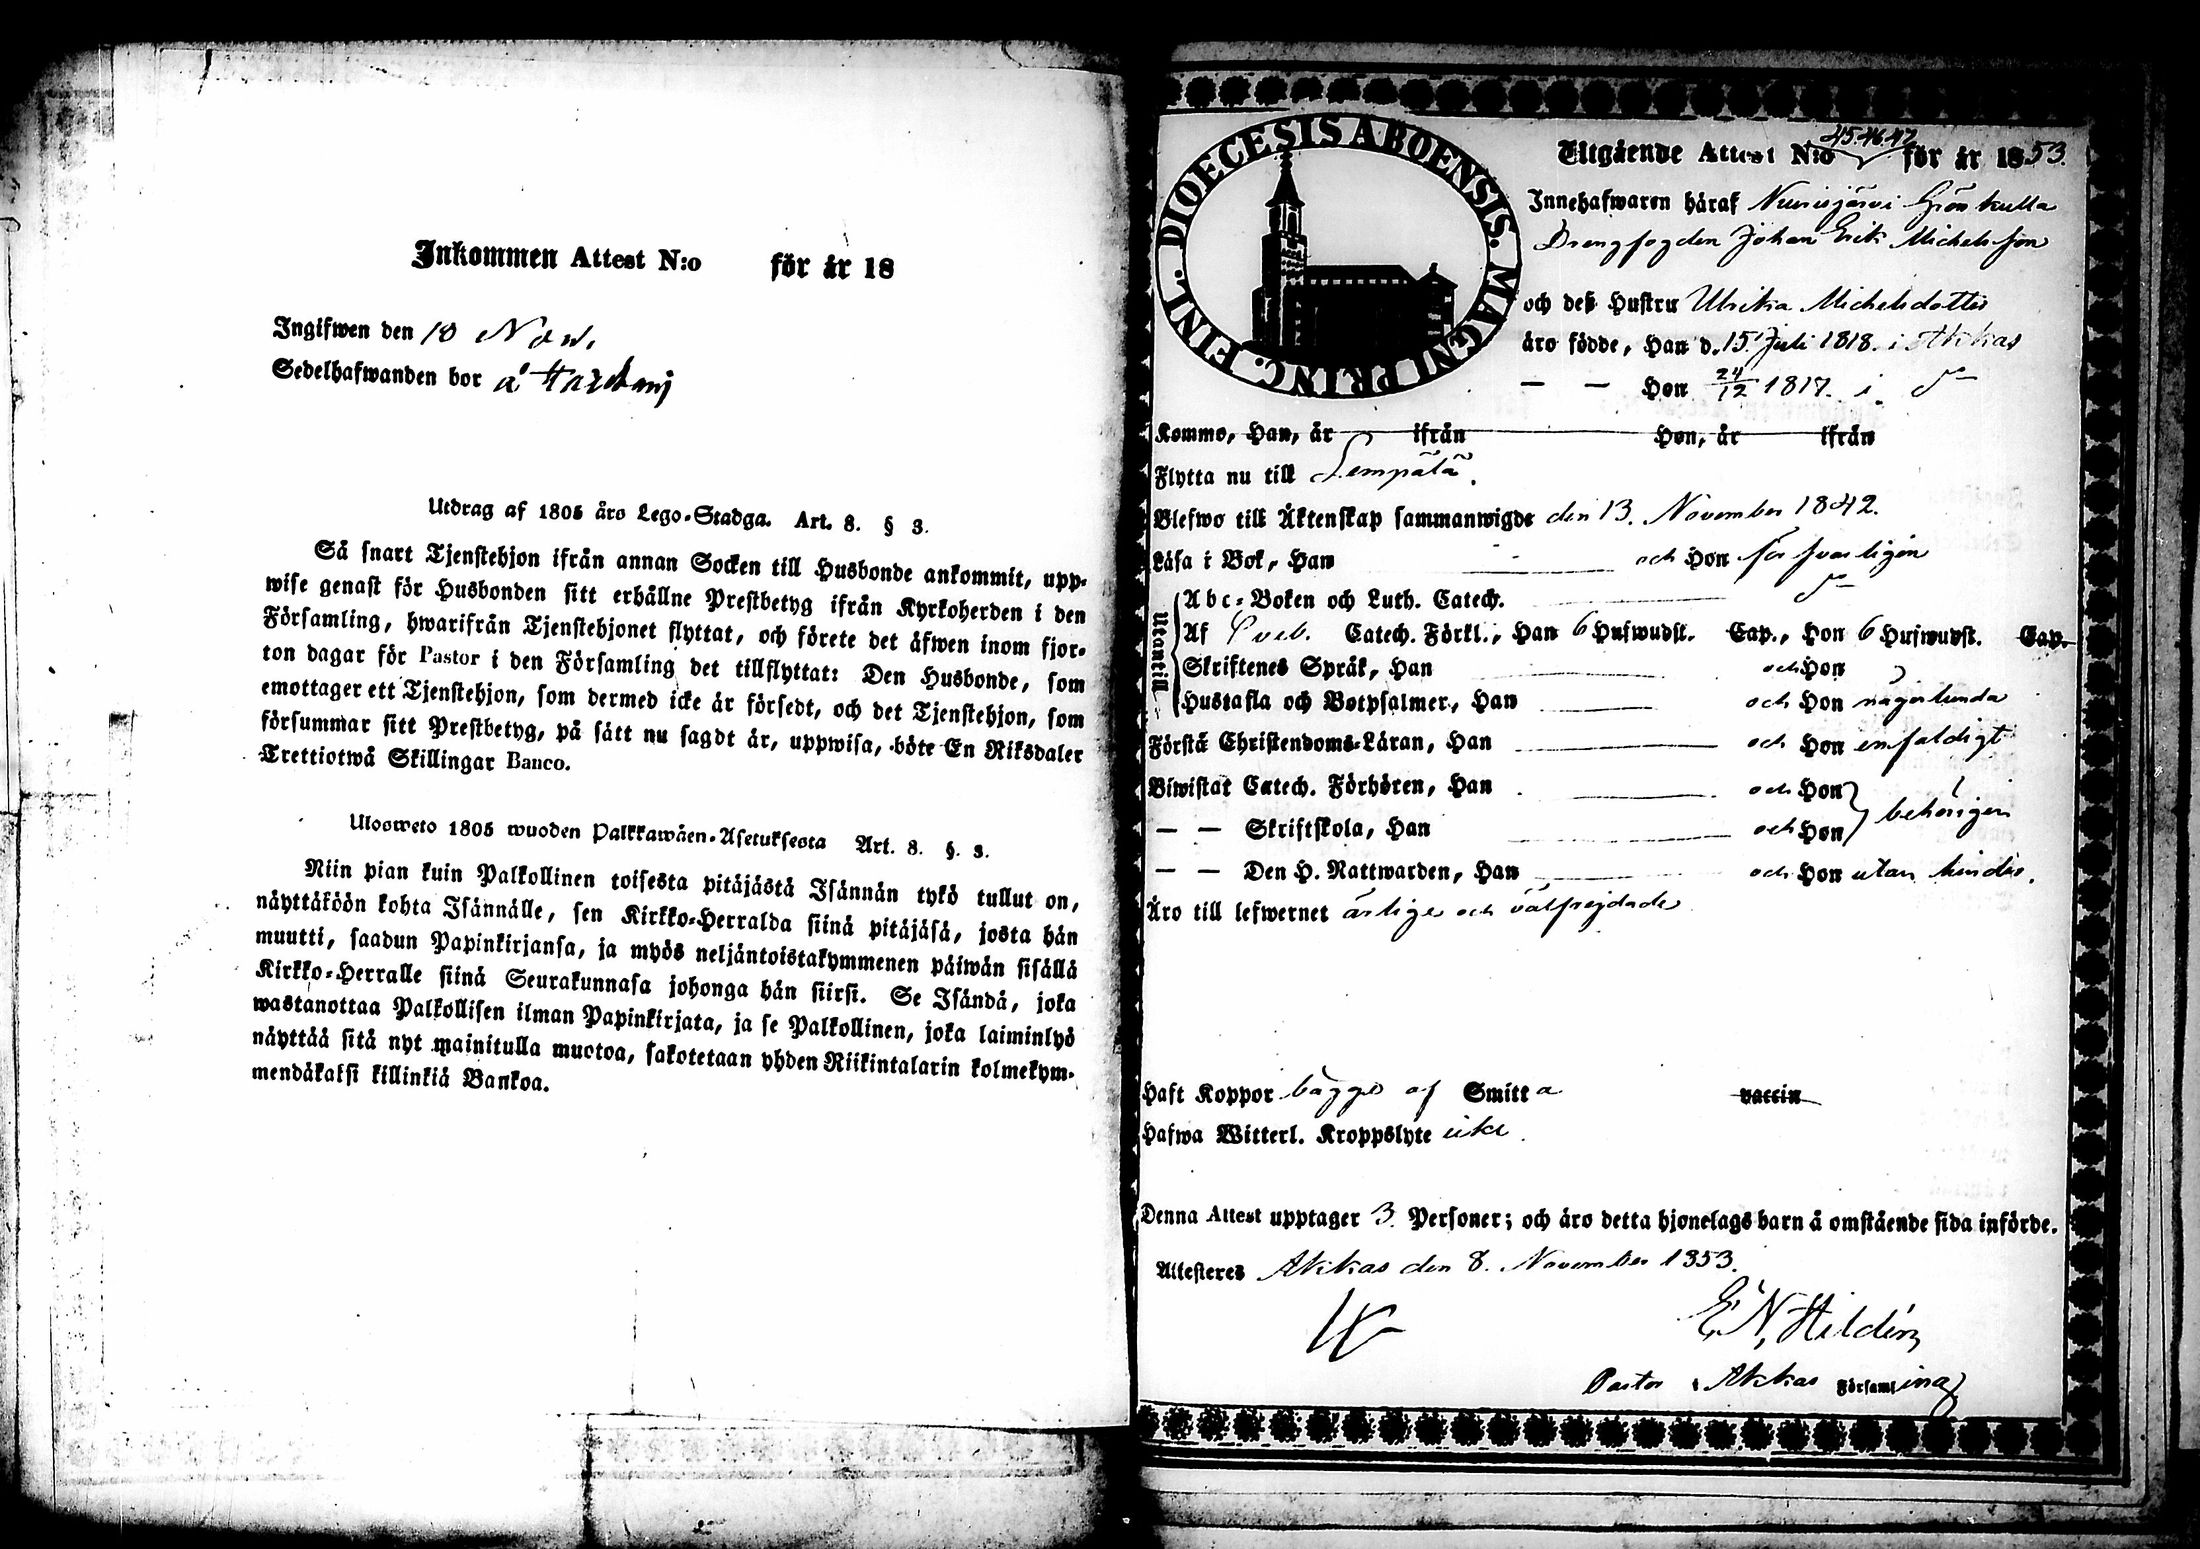 Inkommen Attest N:o för år 18
Ingifwen den 10 Nov.
Sedelhafwanden bor å
Utdrag af 1805 års Lego-Stadga. Art. 8. § 3.
Så snart Tjenstehjon ifrån annan Socken till Husbonde ankommit, upp-
wise genast för Husbonden sitt erhållne Prestbetyg ifrån Kyrkoherden i den
Församling, hwarifrån Tjenstehjonet flyttat, och förete det äfwen inom fjor-
ton dagar för Pastor i den Församling det tillflyttat: Den Husbonde, som
emottager ett Tjenstehjon, som dermed icke är försedt, och det Tjenstehjon, som
försummar sitt Prestbetyg, på sätt nu sagdt är, uppwisa, böte En Riksdaler
Trettiotwå Skillingar Banco.
Ulosweto 1805 wuoden Palkkawäen-Asetuksesta Art. 8. §. 3.
Niin pian kuin Palkollinen toisesta pitäjästä Isännän tykö tullut on,
näyttäköön kohta Isännälle, sen Kirkko-Herralda siinä pitäjäsä, josta hän
muutti, saadun Papinkirjansa, ja myös neljäntoistakymmenen päiwän sisällä
Kirkko-Herralle siinä Seurakunnasa johonga hän siirsi. Se Isändä, joka
wastanottaa Palkollisen ilman Papinkirjata, ja se Palkollinen, joka laiminlyö
näyttää sitä nyt mainitulla muotoa, sakotetaan yhden Riikintalarin kolmekym-
mendäkaksi killinkiä Bankoa.
FINL. DIOECESIS ABOENSIS. MAGNI PRINC.
45.46.47
Utgående Attest N:o för år 1853.
Innehafwaren häraf Nurisjärvi Grönkulla
Drengfogden Johan Erik Michelsson
och deß Hustru Ulrika Michelsdotter
äro födde, Han d. 15 Juli 1818. i Akkas
— — Hon 24/12 1817. i d:o
Komme, Han, år ifrån Hon, år ifrån
Flytta nu till Lempälä.
Blefwo till Äktenskap sammanwigde den 13. November 1842.
Läsa i Bok, Han och Hon försvarligen
Utantill
Abc-Boken och Luth. Catech. d:o
Af Sveb. Catech. Förkl., Han 6 Hufwudst. Cap., Hon 6 Hufwudst. Cap.
Skriftenes Språk, Han och Hon
Hustafla och Botpsalmer, Han och Hon någorlunda
Förstå Christendoms-Läran, Han och Hon enfaldigt
Biwistat Catech. Förhören, Han och Hon
— — Skriftskola, Han och Hon behörigen
— — Den H. Nattwarden, Han och Hon utan hinder.
Äro till lefwernet ärlige och välfrejdade
Haft Koppor bägge af Smitta vaccin
Hafwa Witterl. Kroppslyte icke.
Denna Attest upptager 3 Personer; och äro detta hjonelags barn å omstående sida införde.
Attesteres Akkas den 8. November 1853.
E. N. Hildén
Pastor i Akkas Församling